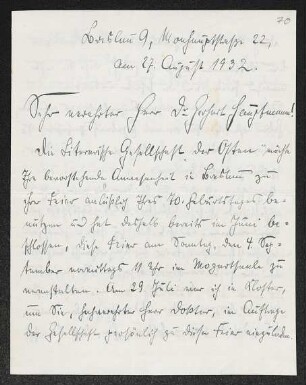 70
Breslau 9, Monhauptstraße 22,
am 27. August 1932.
Sehr verehrter Herr Dr. Gerhart Hauptmann!
Die Literarische Gesellschaft „Der Osten“ möchte
Ihre bevorstehende Anwesenheit in Breslau zu
einer Feier anläßlich Ihres 70. Geburtstages be-
nutzen und hat deshalb bereits im Juni be-
schlossen, diese Feier am Sonntag, den 4. Sep-
tember vormittags 11 Uhr im Mozartsaale zu
veranstalten. Am 29. Juli war ich in Kloster,
um Sie, hochverehrter Herr Doktor, im Auftrage
der Gesellschaft persönlich zu dieser Feier einzuladen.